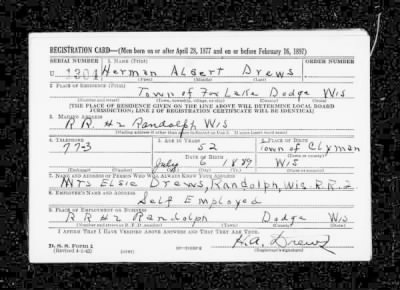 REGISTRATION CARD—(Men born on or after April 28, 1877 and on or before February 16, 1897)
SERIAL NUMBER 1. NAME (Print) ORDER NUMBER
U 1304 Herman Albert Drews
(First) (Middle) (Last)
2. PLACE OF RESIDENCE (Print)
Town of Fox Lake Dodge Wis
(Number and street) (Town, township, village, or city) (County) (State)
[THE PLACE OF RESIDENCE GIVEN ON THE LINE ABOVE WILL DETERMINE LOCAL BOARD
JURISDICTION; LINE 2 OF REGISTRATION CERTIFICATE WILL BE IDENTICAL]
3. MAILING ADDRESS
R.R. #2 Randolph Wis
[Mailing address if other than place indicated on line 2. If same insert word same]
4. TELEPHONE 5. AGE IN YEARS 6. PLACE OF BIRTH
773 52 Town of Clyman
DATE OF BIRTH
July 6 1889 Wis
7. NAME AND ADDRESS OF PERSON WHO WILL ALWAYS KNOW YOUR ADDRESS
Mrs Elsie Drews, Randolph, Wis. R.R. 2
8. EMPLOYER'S NAME AND ADDRESS
Self Employed
9. PLACE OF EMPLOYMENT OR BUSINESS
R R #2 Randolph Dodge Wis
(Number and street or R. F. D. number) (Town) (County) (State)
I AFFIRM THAT I HAVE VERIFIED ABOVE ANSWERS AND THAT THEY ARE TRUE.
D. S. S. Form 1
(Revised 4-1-42)
H. A. Drews
(Registrant's signature)